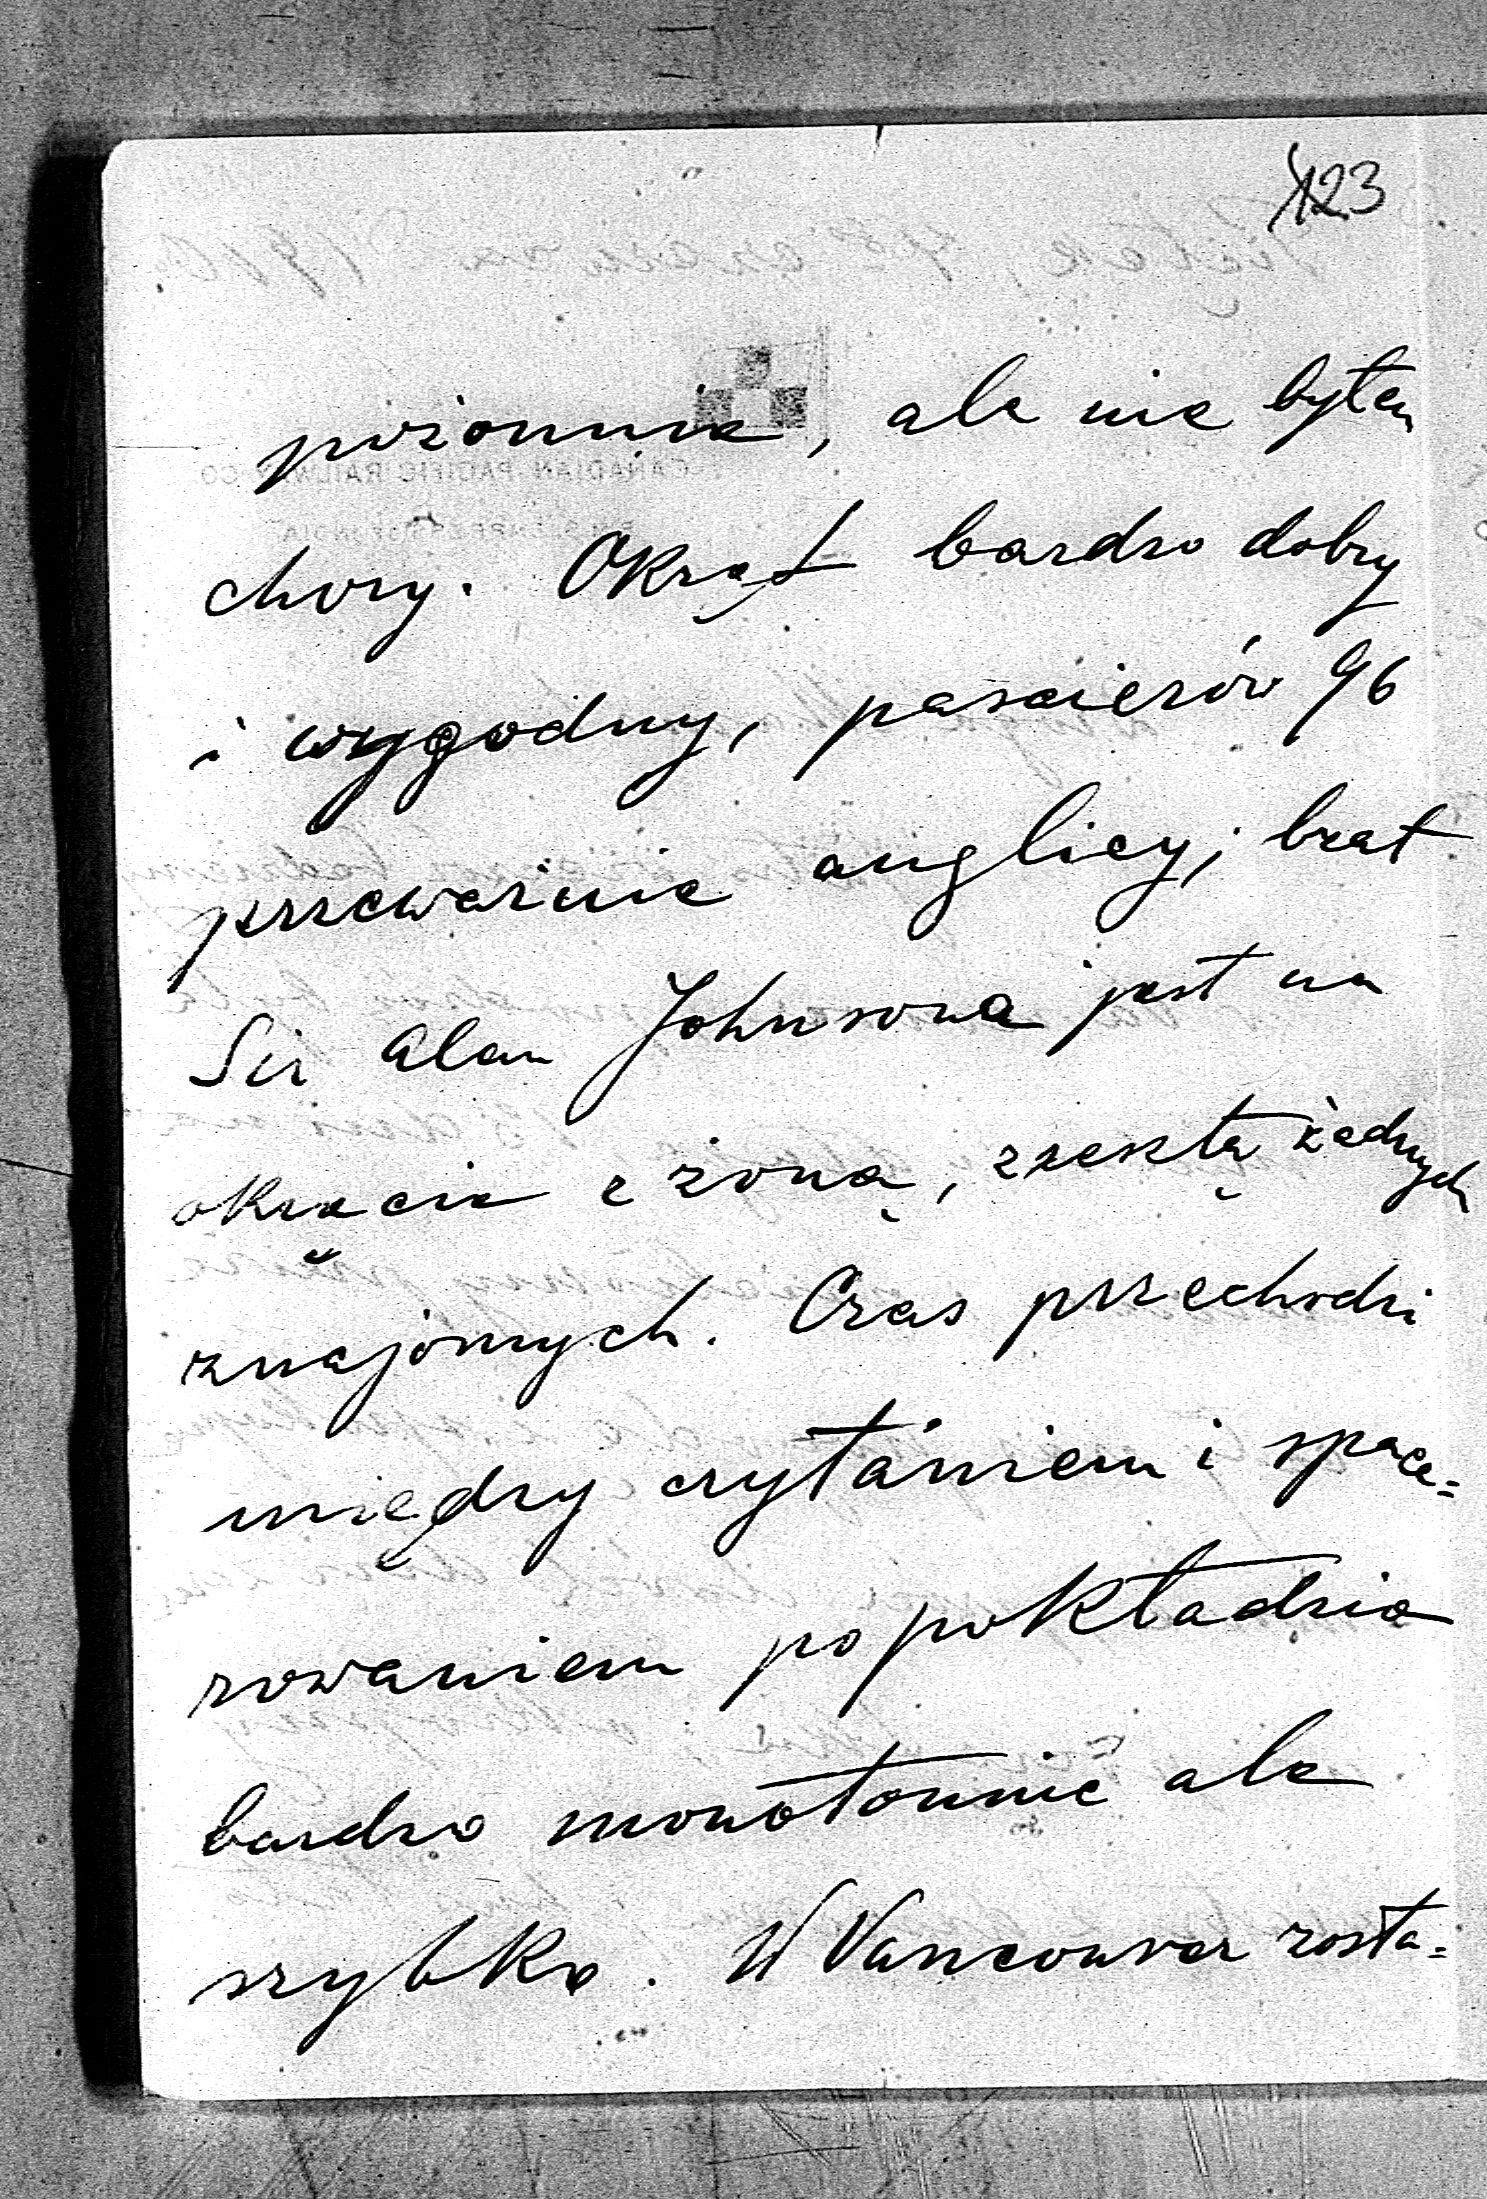 123
poziomnie, ale nie byłem
chory. Okręt bardzo dobry
i wygodny, pasażerów 96
przeważnie anglicy; brat
Sir Alan Johnsona jest na
okręcie z żoną, zresztą żadnych
znajomych. Czas przechodzi
między czytaniem i space=
rowaniem po pokładzie
bardzo monotonnie ale
szybko. W Vancouver zosta=